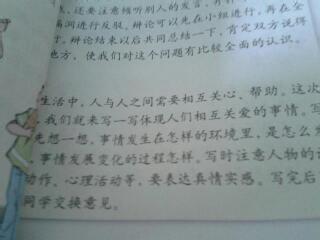 还要注意倾听别人的发言,
漏洞进行反驳。辩论可以先在小组进行,再在全
行。辩论结束以后共同总结一下,肯定双方说得
地方,使我们对这个问题有比较全面的认识。
生活中,人与人之间需要相互关心、帮助。这次
我们就来写一写体现人们相互关爱的事情。写
先想一想,事情发生在怎样的环境里,是怎么发
事情发展变化的过程怎样。写时注意人物的
动作、心理活动等,要表达真情实感。写完后
同学交换意见。